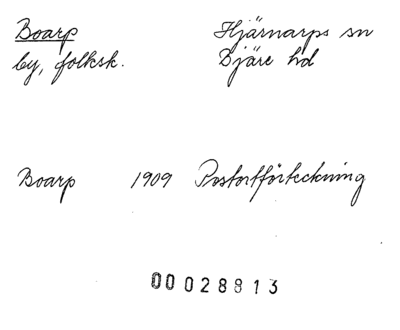 Boarp Hjärnarps sn
by, folksk. Bjäre hd
Boarp 1909 Postortförteckning
00028813